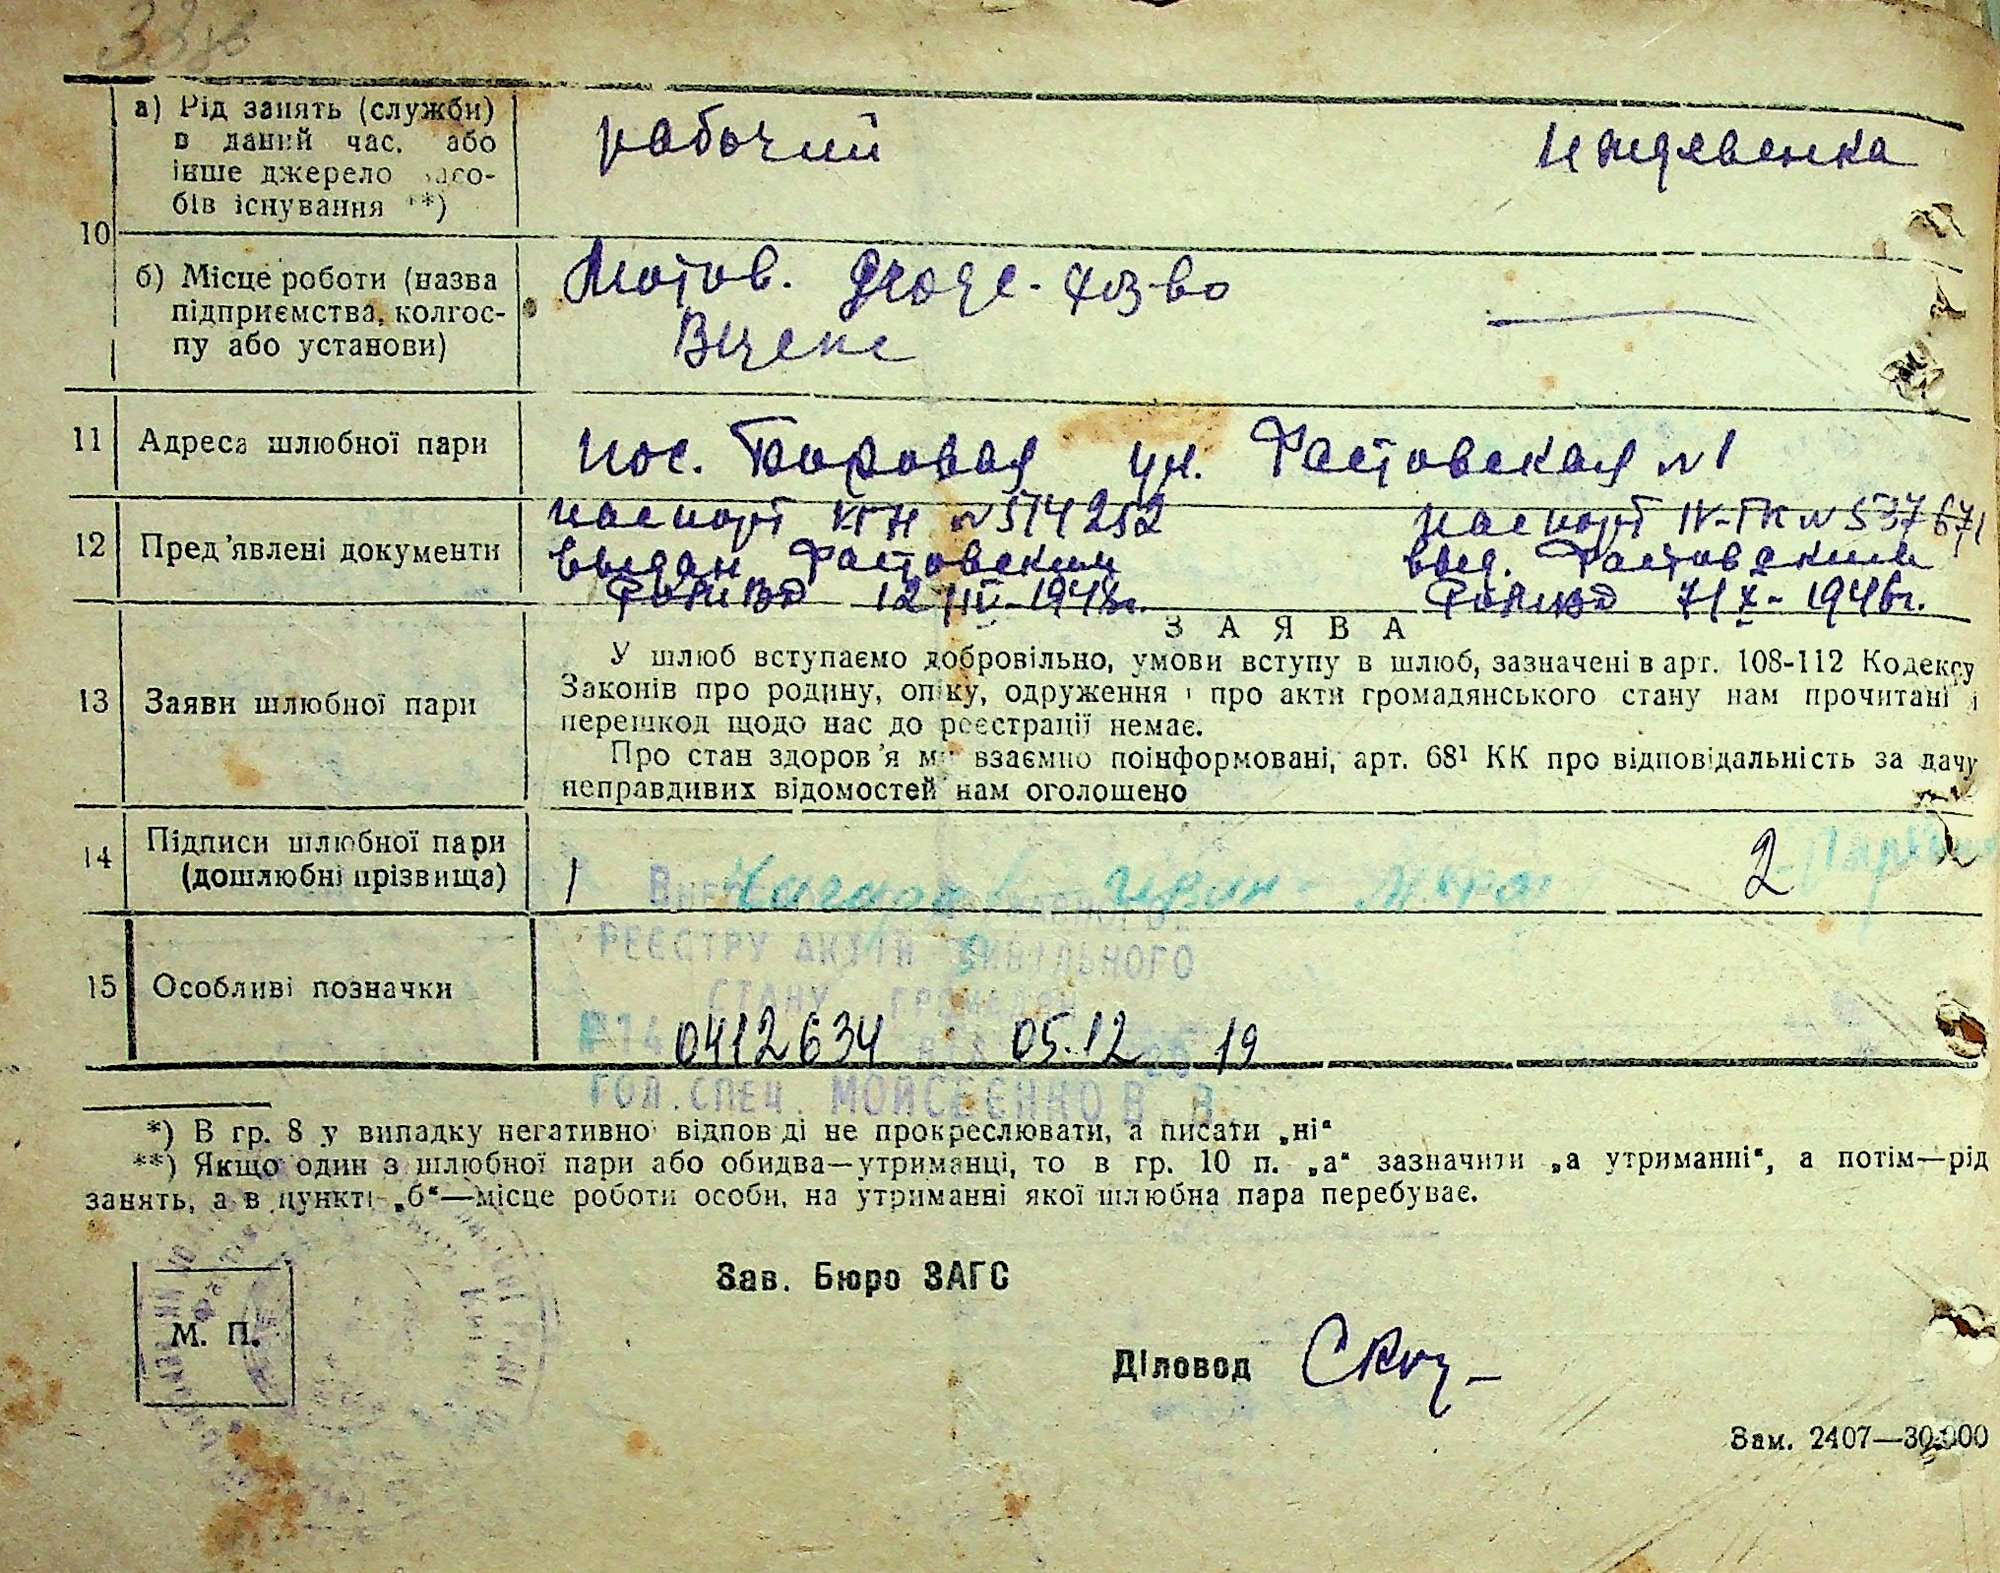 а) Рід занять (служби)
в даний час, або
інше джерело засо-
бів існування **)
рабочий
иждевенка
10
б) Місце роботи (назва
підприємства, колгос-
пу або установи)
Мотов.
11 Адреса шлюбної пари
пос. Боровая ул. Фастовская №1
12 Пред'явлені документи
паспорт № 514252
паспорт IV-ГК № 537671
выдан Фастовским
выд. Фастовским
12/IV-1948г.
7/X-1946г.
ЗАЯВА
13 Заяви шлюбної пари
У шлюб вступаємо добровільно, умови вступу в шлюб, зазначені в арт. 108-112 Кодексу
Законів про родину, опіку, одруження і про акти громадянського стану нам прочитані і
перешкод щодо нас до реєстрації немає.
Про стан здоров'я ми взаємно поінформовані, арт. 68¹ КК про відповідальність за дачу
неправдивих відомостей нам оголошено
14 Підписи шлюбної пари
(дошлюбні прізвища)
1
2
15 Особливі позначки
РЕЄСТРУ АКТІВ ЦИВІЛЬНОГО
СТАНУ ГРОМАДЯН
0412634 05.12 19
ГОЛ. СПЕЦ. МОЙСЕЄНКО В. В.
*) В гр. 8 у випадку негативної відповіді не прокреслювати, а писати „ні"
**) Якщо один з шлюбної пари або обидва—утриманці, то в гр. 10 п. „а" зазначити „а утриманні", а потім—рід
занять, а в пункті „б"—місце роботи особи, на утриманні якої шлюбна пара перебуває.
Зав. Бюро ЗАГС
М. П.
Діловод
Зам. 2407—30.000